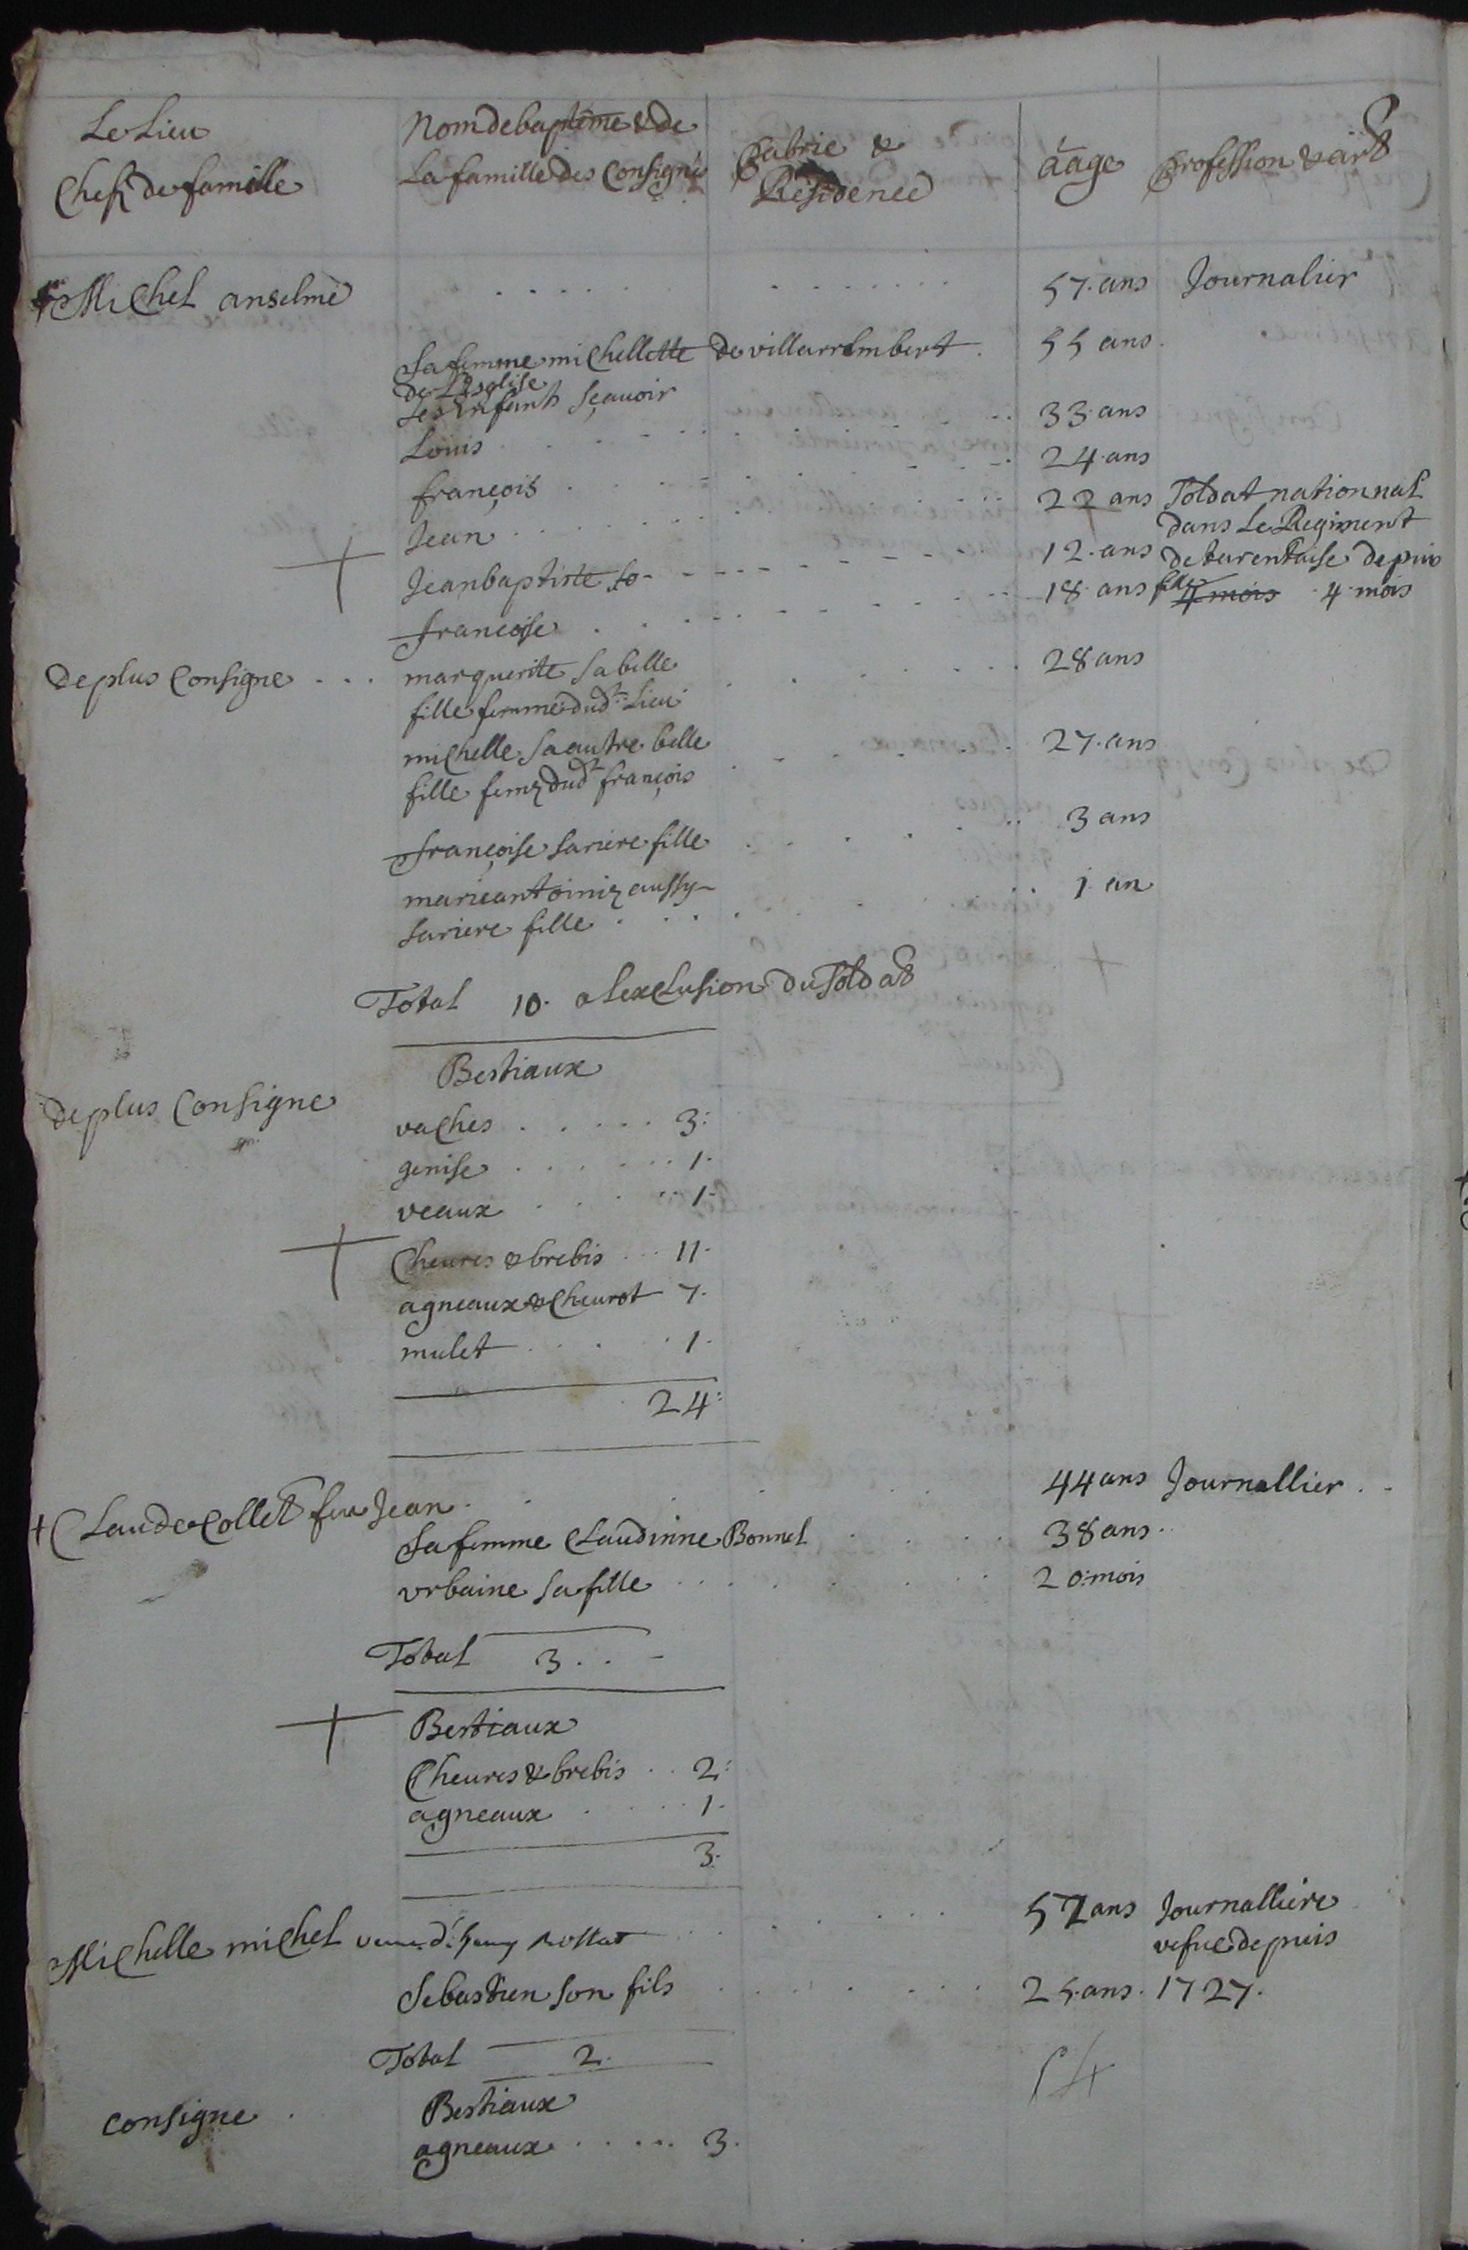 Le Lieu
Chefz de famille
Nom de baptême & de
La famille des Consignés
patrie &
Residence
aâge
profession & art
+ Michel anselme
57. ans Journalier
Sa femme michellette de villarrembert 55 ans.
de L'Esglise
Ses Enfants Sçavoir
Louis 33 ans
françois 24 ans
Jean 22 ans Soldat nationnal
dans Le Regiment
Jeanbaptiste 12. ans de tarentaise depuis
françoise 18 ans fille 4 mois 4 mois
de plus Consigne marguerite sa belle 28 ans
fille femme dud.t Lieu
michelle Sa autre belle 27. ans
fille femz dud.t françois
françoise Sariere fille 3 ans
marieantoiniz aussy 1 an
Sariere fille
Total 10. a Lexclusion du Soldat
Bestiaux
de plus Consigne
vaches 3:
genise 1.
veaux 1.
+ Cheures & brebis 11.
agneaux & Cheurot 7.
mulet 1.
24:
+ Claude Collet feu Jean 44 ans Journallier
Sa femme Claudinne Bonnel 38 ans
vrbaine Sa fille 20: mois
Total 3
+ Bestiaux
Cheures & brebis 2:
agneaux 1.
3.
Michelle michel 57 ans Journalliere
vefue depuis
Sebastien Son fils 25. ans. 1727.
Total 2.
54
consigne Bestiaux
agneaux 3.